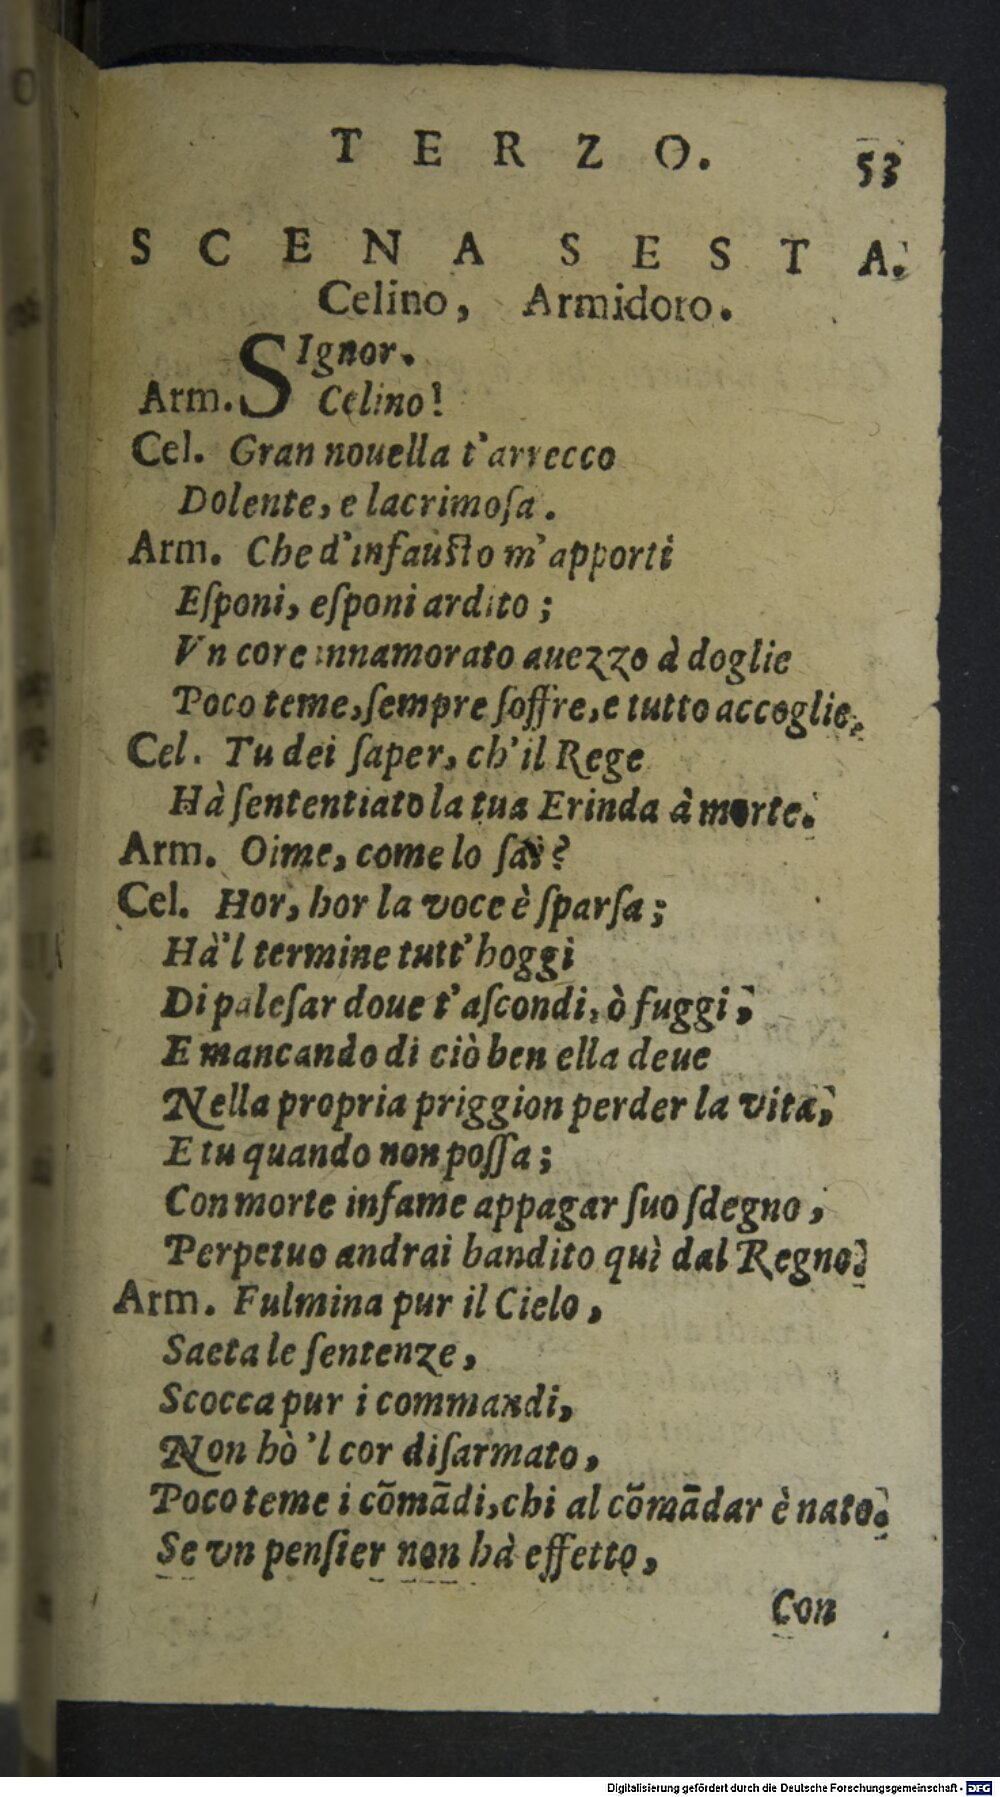 TERZO. 53
SCENA SESTA.
Celino, Armidoro.
SIgnor.
Arm. Celino!
Cel. Gran nouella t'arrecco
Dolente, e lacrimoſa.
Arm. Che d'infauſto m'apporti
Eſponi, eſponi ardito;
Vn core innamorato auezzo à doglie
Poco teme, ſempre ſoffre, e tutto accoglie.
Cel. Tu dei ſaper, ch'il Rege
Hà ſententiato la tua Erinda à morte.
Arm. Oime, come lo ſai?
Cel. Hor, hor la voce è ſparſa;
Hà'l termine tutt'hoggi
Di paleſar doue t'aſcondi, ò fuggi,
E mancando di ciò ben ella deue
Nella propria priggion perder la vita,
E tu quando non poſſa;
Con morte infame appagar ſuo ſdegno,
Perpetuo andrai bandito quì dal Regno.
Arm. Fulmina pur il Cielo,
Saeta le ſentenze,
Scocca pur i commandi,
Non hò'l cor diſarmato,
Poco teme i cõmãdi, chi al cõmãdar è nato.
Se vn penſier non hà effetto,
Con
Digitalisierung gefördert durch die Deutsche Forschungsgemeinschaft - DFG